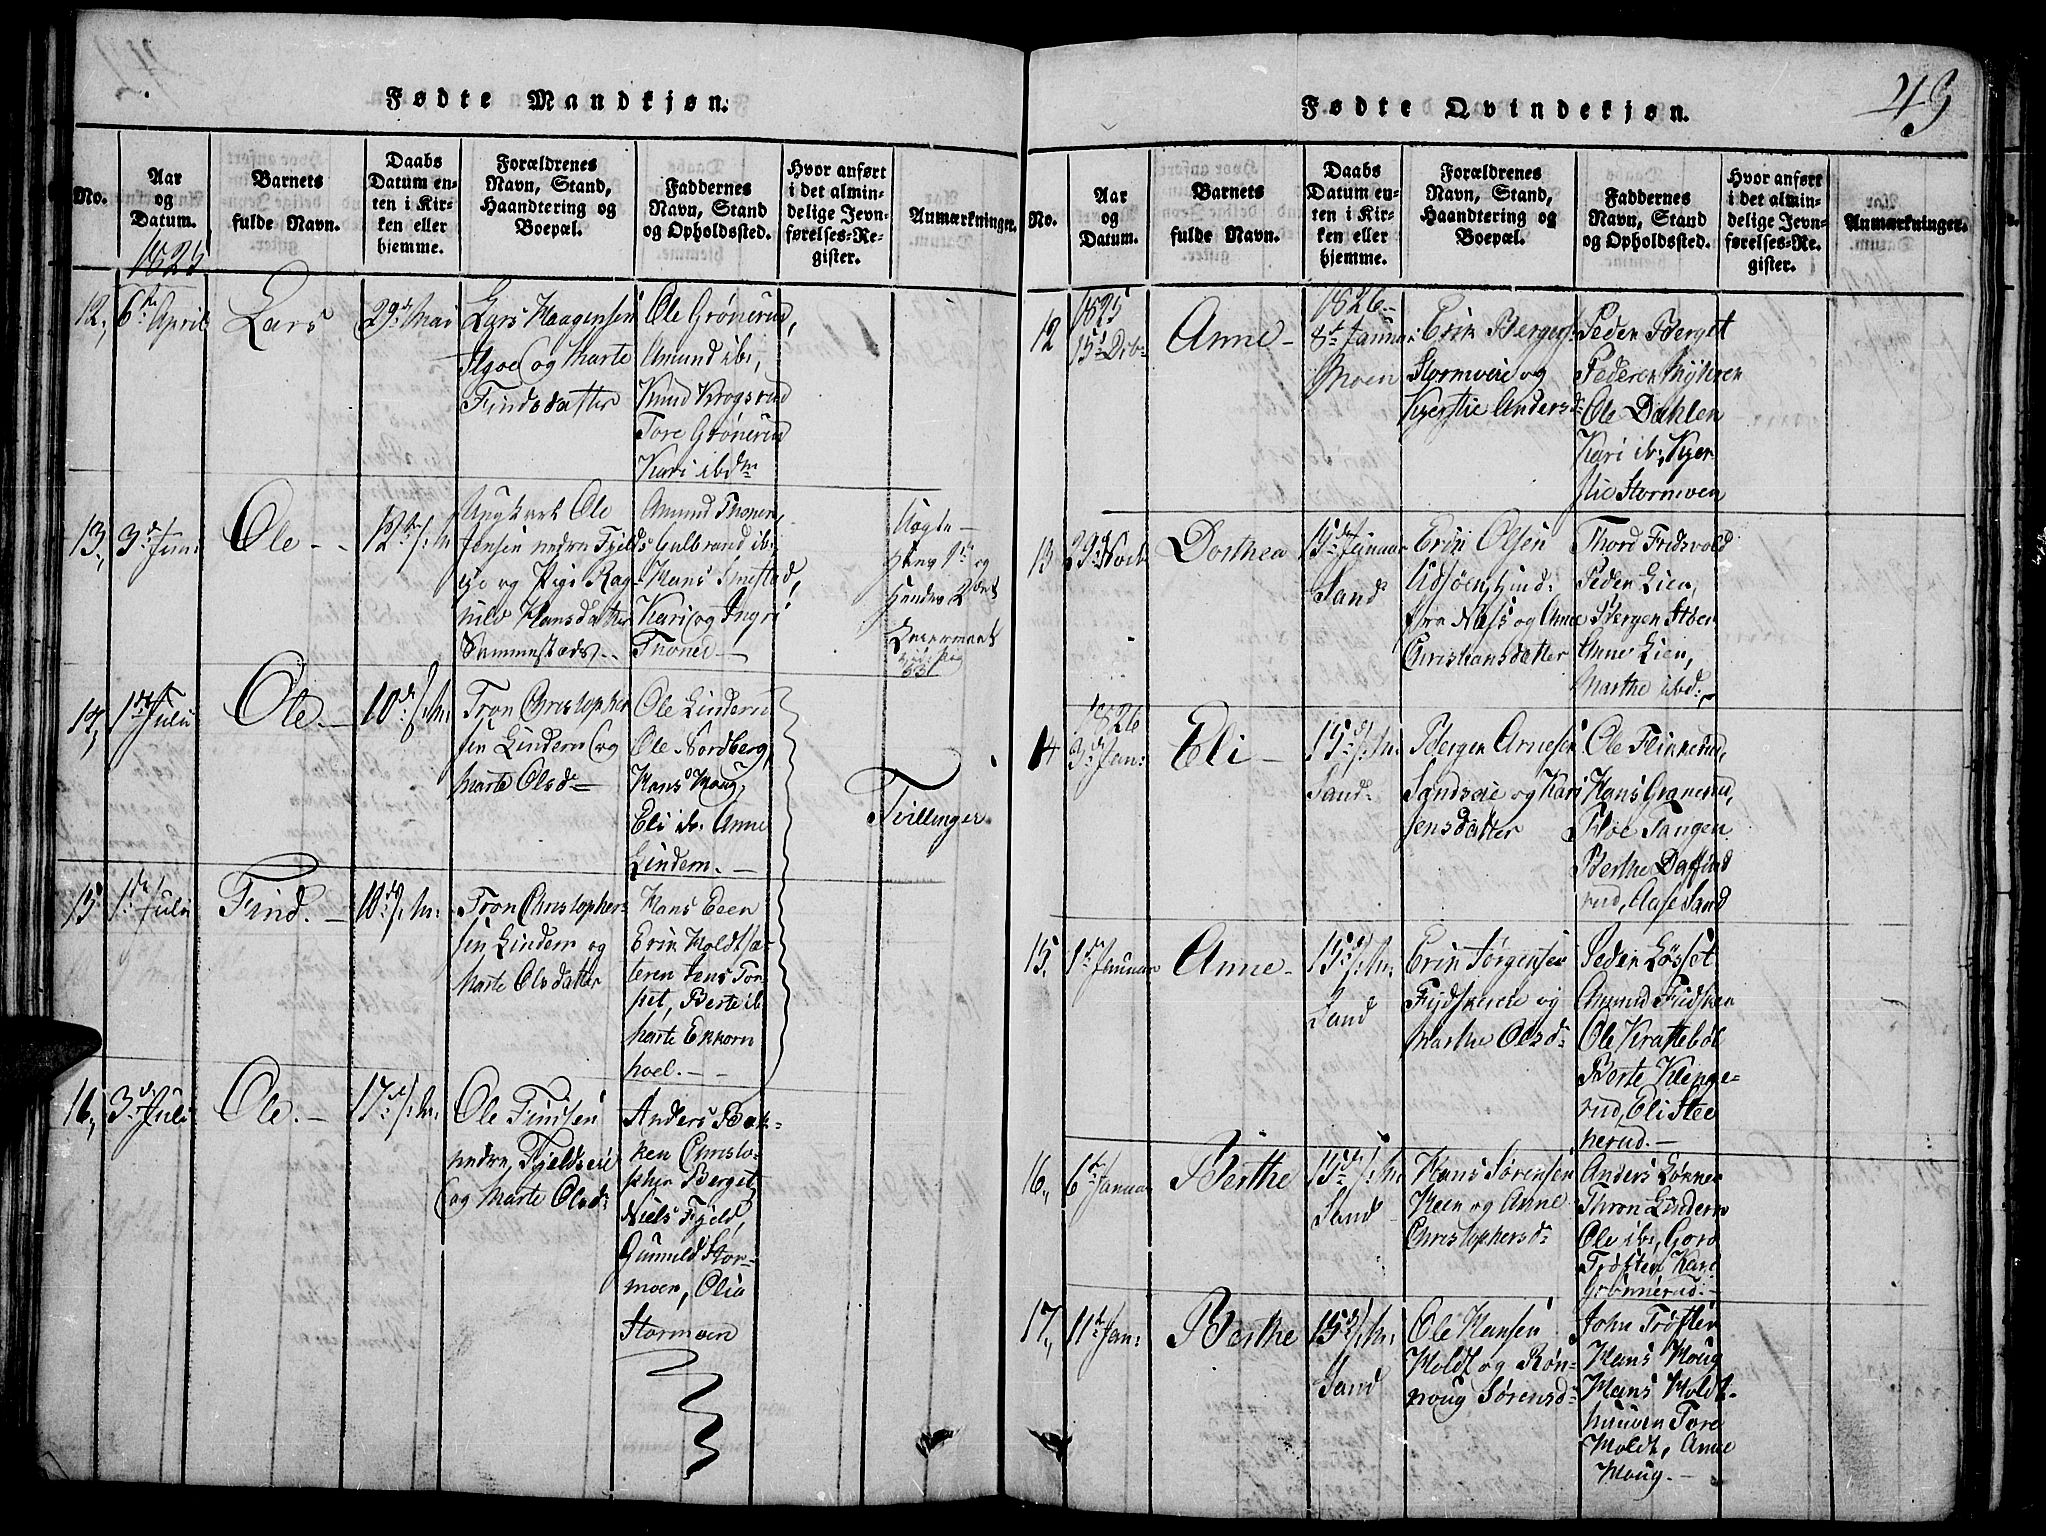 Fødte Mandkjøn.
No.
Aar
og
Datum.
Barnets
fulde Navn.
Daabs
Datum en-
ten i Kir-
ken eller
hjemme.
Forældrenes
Navn, Stand,
Haandtering og
Boepæl.
Faddernes
Navn, Stand
og Opholdssted.
Hvor anført
i det almin-
delige Jevn-
førelses-Re-
gister.
Anmærkninger.
1825
12, 6te April
Lars
29de Mai
Lars Haagensen
og Marte
Findsdatter
Ole Grønerud,
Amund ib:,
Knud Krogsrud
Tore Grønerud
Kari ibdm
13, 3de Juni
Ole - -
12te s: m:
Ungkarl Ole
Jensen nedre Fjelds
eje og Pige Rag-
nild Hansdatter
Sammesteds. -
Amund Thonen,
Gulbrand ib:
Hans Smestad,
Kari og Ingri
Thoned -
Uægte -
14, 1ste Juli
Ole. -
10de s: m:
Tron Christopher
sen Lindern og
Marte Olsd=
Ole Linderud
Ole Nordberg,
Hans Houg,
Eli ib: Anne
Lindern. -
Tvillinger
15 1ste Juli
Find. -
10de s: m:
Tron Christopher-
sen Lindern og
Marte Olsdatter
Hans Eeen
Erik Holdtsæ-
teren Jens Tor-
set, Berte ib
Marte Ekkorn
hoel. - -
16, 3de Juli
Ole. -
17de s: m:
Ole Findsen
nedre Fjeldseie
og Marte Olsd:
Anders Bak-
ken Christo-
pher Berget,
Niels Fjeld,
Gunnild Stor-
moen, Olia
Stormoen
49
Fødte Qvindekjøn.
No.
Aar
og
Datum.
Barnets
fulde Navn.
Daabs
Datum en-
ten i Kir-
ken eller
hjemme.
Forældrenes
Navn, Stand,
Haandtering og
Boepæl.
Faddernes
Navn, Stand
og Opholdssted.
Hvor anført
i det almin-
delige Jevn-
førelses-Re-
gister.
Anmærkninger.
12
1825
15de Dcb:
Anne -
1826 -
8de Januar
Moen
Erik Bergers:
Stormoeie og
Kjerstie Andersd:
Peder Berget
Peder Myhren
Ole Dahlen
Kari ib:, Kjer-
stie Stormoen
13 29de Novb:
Dorthea
15de Januar
Sand
Erik Olsen
fra Næs og Anne
Christiansdatter
Thord Fridsvold
Peder Lien,
Bergen Støer
Anne Lien,
Marthe ibd: -
1826
14 3de Jan:
Eli -
15de s: m:
Sand.
Bergen Arnesen
Sandseie og Kari
Jensdatter
Ole Flikkerud,
Hans Granerud,
Floe Tangen
Berthe Daffind
rud, Aase Sand
15, 1ste Januar
Anne -
15de s: m:
Sand
Erik Jørgensen
og
Marthe Olsd:
Peder Løsset
Amund Fridsken
Ole Krattebøl
Berte Klenge-
rud, Eli Stee
nerud. -
16, 6te Januar
Berthe
15de s: m:
Sand
Hans Sørensen
Heen og Anne
Christophersd:
Anders Løkken
Thron Lindern
Ole ib:, Goro
Trøften Kari
Grønnerud. -
17, 11te Jan:
Berthe
15de s: m:
Sand
Ole Hansen
Holdt og Røn-
noug Sørensd:
John Trøften
Hans Houg
Hans Holdt-
huuven Tore
Holdt, Anne
Houg. -